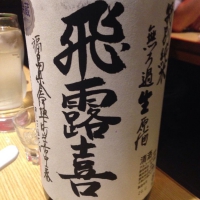 特別純米
無ろ過生原酒
飛露喜
福島県会津坂下町
清酒